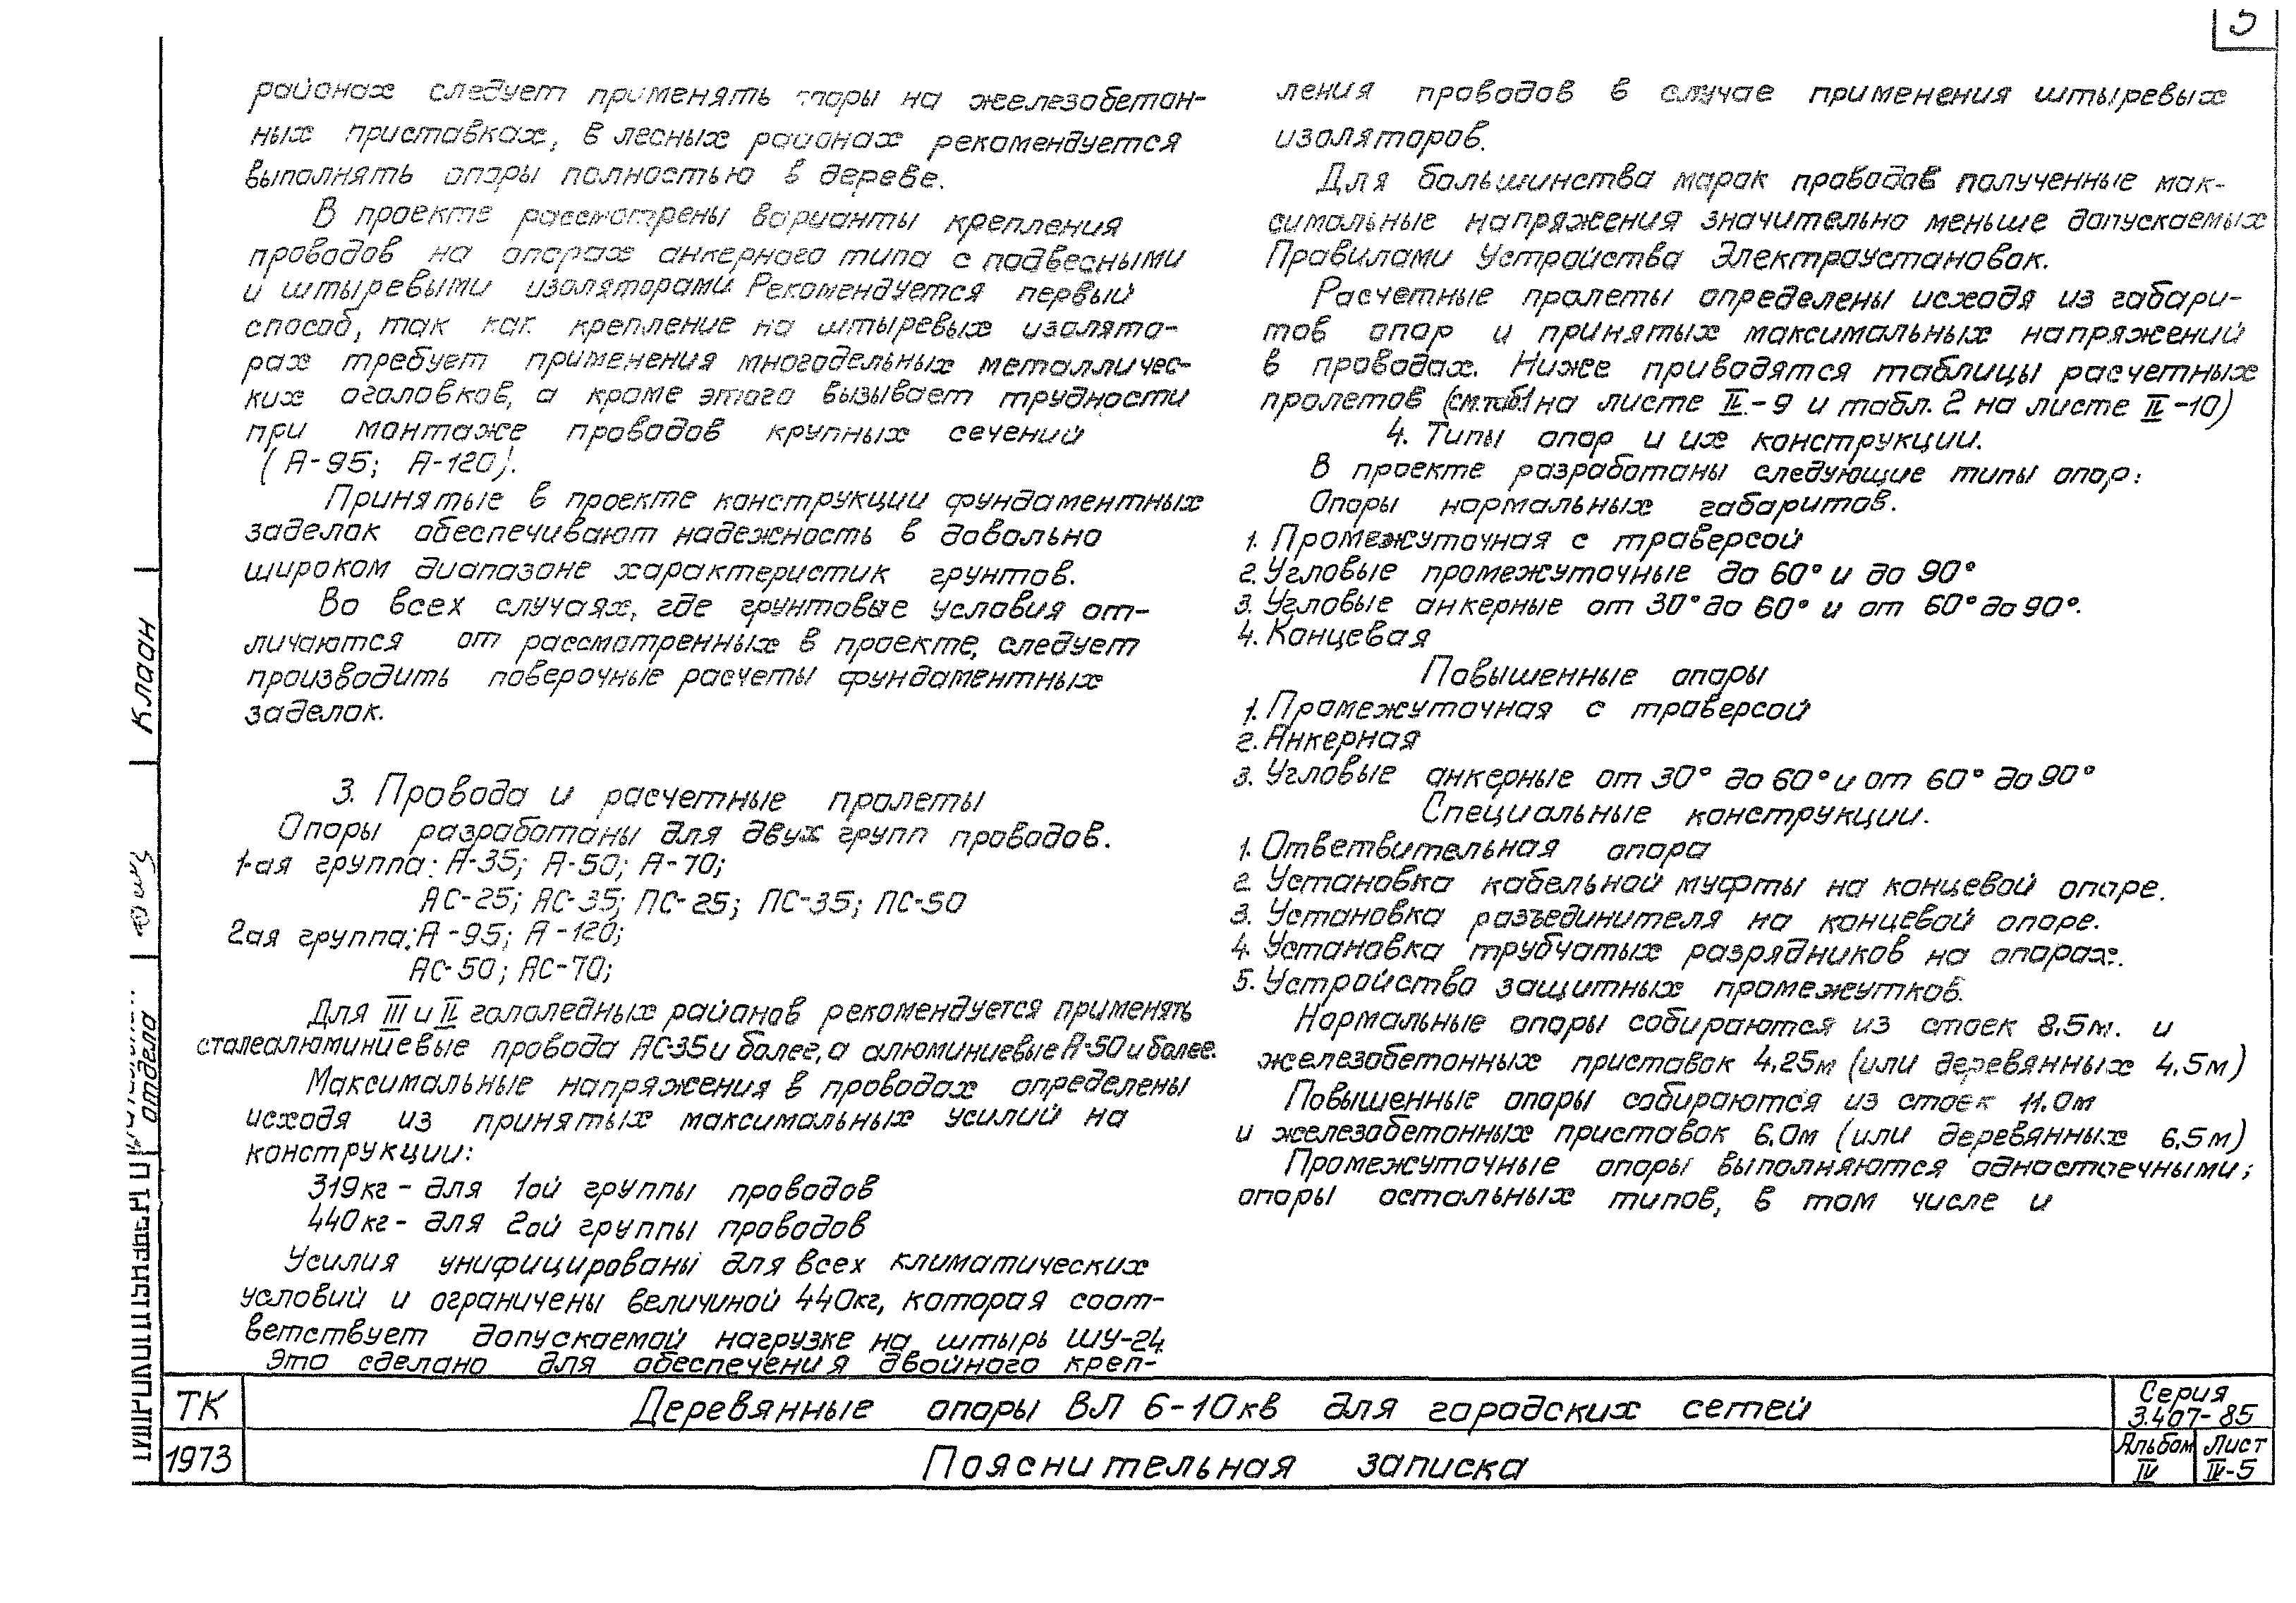 5
районах следует применять опоры на железобетон-
ных приставках, в лесных районах рекомендуется
выполнять опоры полностью в дереве.
В проекте рассмотрены варианты крепления
проводов на опорах анкерного типа с подвесными
и штыревыми изоляторами. Рекомендуется первый
способ, так как крепление на штыревых изолято-
рах требует применения многодельных металличес-
ких оголовков, а кроме этого вызывает трудности
при монтаже проводов крупных сечений
(А-95; А-120).
Принятые в проекте конструкции фундаментных
заделок обеспечивают надежность в довольно
широком диапазоне характеристик грунтов.
Во всех случаях, где грунтовые условия от-
личаются от рассмотренных в проекте, следует
производить поверочные расчеты фундаментных
заделок.
3. Провода и расчетные пролеты
Опоры разработаны для двух групп проводов.
1-ая группа: А-35; А-50; А-70;
АС-25; АС-35; ПС-25; ПС-35; ПС-50
2ая группа: А-95; А-120;
АС-50; АС-70;
Для III и IV гололедных районов рекомендуется применять
сталеалюминиевые провода АС-35 и более, а алюминиевые А-50 и более.
Максимальные напряжения в проводах определены
исходя из принятых максимальных усилий на
конструкции:
319кг - для 1ой группы проводов
440кг - для 2ой группы проводов
Усилия унифицированы для всех климатических
условий и ограничены величиной 440кг, которая соот-
ветствует допускаемой нагрузке на штырь ШУ-24
Это сделано для обеспечения двойного креп-
ления проводов в случае применения штыревых
изоляторов.
Для большинства марок проводов полученные мак-
симальные напряжения значительно меньше допускаемых
Правилами Устройства Электроустановок.
Расчетные пролеты определены исходя из габари-
тов опор и принятых максимальных напряжений
в проводах. Ниже приводятся таблицы расчетных
пролетов (см. таб.1 на листе IV-9 и табл. 2 на листе IV-10)
4. Типы опор и их конструкции.
В проекте разработаны следующие типы опор:
Опоры нормальных габаритов.
1. Промежуточная с траверсой
2. Угловые промежуточные до 60° и до 90°
3. Угловые анкерные от 30° до 60° и от 60° до 90°.
4. Концевая
Повышенные опоры
1. Промежуточная с траверсой
2. Анкерная
3. Угловые анкерные от 30° до 60° и от 60° до 90°
Специальные конструкции.
1. Ответвительная опора
2. Установка кабельной муфты на концевой опоре.
3. Установка разъединителя на концевой опоре.
4. Установка трубчатых разрядников на опорах.
5. Устройство защитных промежутков.
Нормальные опоры собираются из стоек 8.5м. и
железобетонных приставок 4.25м (или деревянных 4.5м)
Повышенные опоры собираются из стоек 11.0м
и железобетонных приставок 6.0м (или деревянных 6.5м)
Промежуточные опоры выполняются одностоечными;
опоры остальных типов, в том числе и
Клаан
отдела
ТК
1973
Деревянные опоры ВЛ 6-10кв для городских сетей
Пояснительная записка
Серия
3.407-85
Альбом IV
Лист IV-5